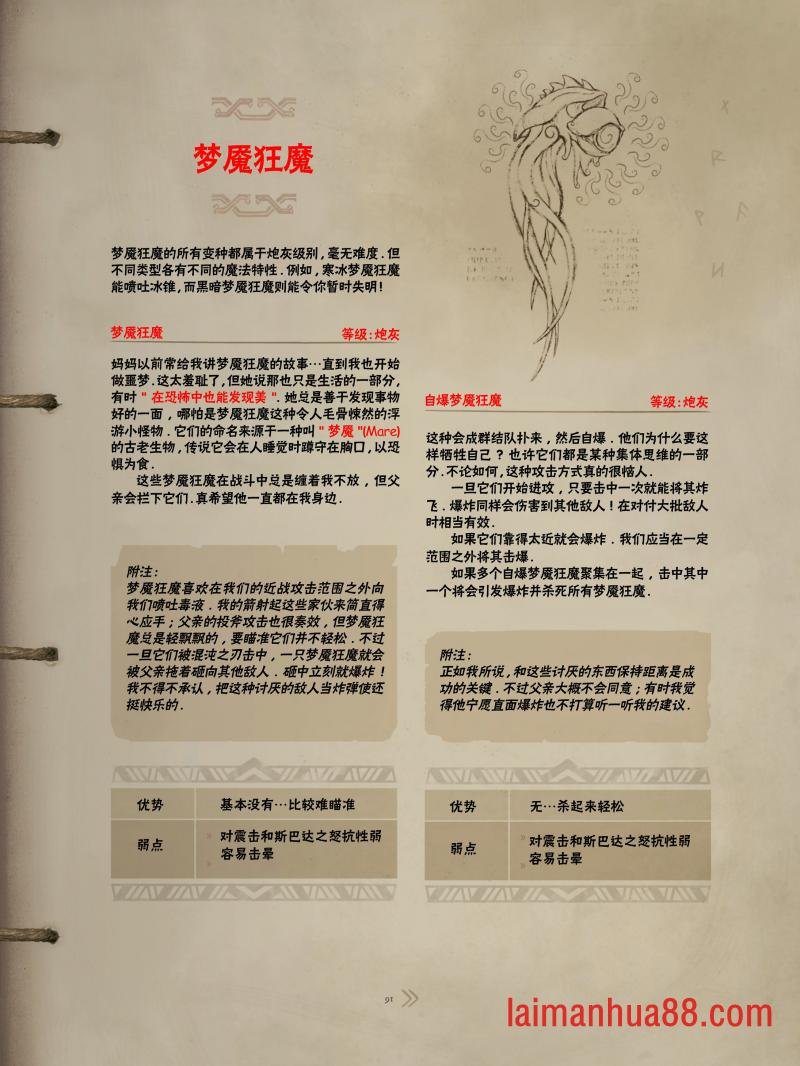 梦魇狂魔
梦魇狂魔的所有变种都属于炮灰级别,毫无难度.但
不同类型各有不同的魔法特性.例如,寒冰梦魇狂魔
能喷吐冰锥,而黑暗梦魇狂魔则能令你暂时失明!
梦魇狂魔 等级:炮灰
妈妈以前常给我讲梦魇狂魔的故事…直到我也开始
做噩梦.这太羞耻了,但她说那也只是生活的一部分,
有时 " 在恐怖中也能发现美 ". 她总是善于发现事物
好的一面,哪怕是梦魇狂魔这种令人毛骨悚然的浮
游小怪物.它们的命名来源于一种叫 " 梦魇 "(Mare)
的古老生物,传说它会在人睡觉时蹲守在胸口,以恐
惧为食.
这些梦魇狂魔在战斗中总是缠着我不放,但父
亲会拦下它们.真希望他一直都在我身边.
附注:
梦魇狂魔喜欢在我们的近战攻击范围之外向
我们喷吐毒液.我的箭射起这些家伙来简直得
心应手;父亲的投斧攻击也很奏效,但梦魇狂
魔总是轻飘飘的,要瞄准它们并不轻松.不过
一旦它们被混沌之刃击中,一只梦魇狂魔就会
被父亲拖着砸向其他敌人.砸中立刻就爆炸!
我不得不承认,把这种讨厌的敌人当炸弹使还
挺快乐的.
优势 基本没有…比较难瞄准
弱点 » 对震击和斯巴达之怒抗性弱
» 容易击晕
自爆梦魇狂魔 等级:炮灰
这种会成群结队扑来,然后自爆.他们为什么要这
样牺牲自己?也许它们都是某种集体思维的一部
分.不论如何,这种攻击方式真的很恼人.
一旦它们开始进攻,只要击中一次就能将其炸
飞.爆炸同样会伤害到其他敌人!在对付大批敌人
时相当有效.
如果它们靠得太近就会爆炸.我们应当在一定
范围之外将其击爆.
如果多个自爆梦魇狂魔聚集在一起,击中其中
一个将会引发爆炸并杀死所有梦魇狂魔.
附注:
正如我所说,和这些讨厌的东西保持距离是成
功的关键.不过父亲大概不会同意;有时我觉
得他宁愿直面爆炸也不打算听一听我的建议.
优势 无…杀起来轻松
弱点 » 对震击和斯巴达之怒抗性弱
» 容易击晕
91 »
laimanhua88.com